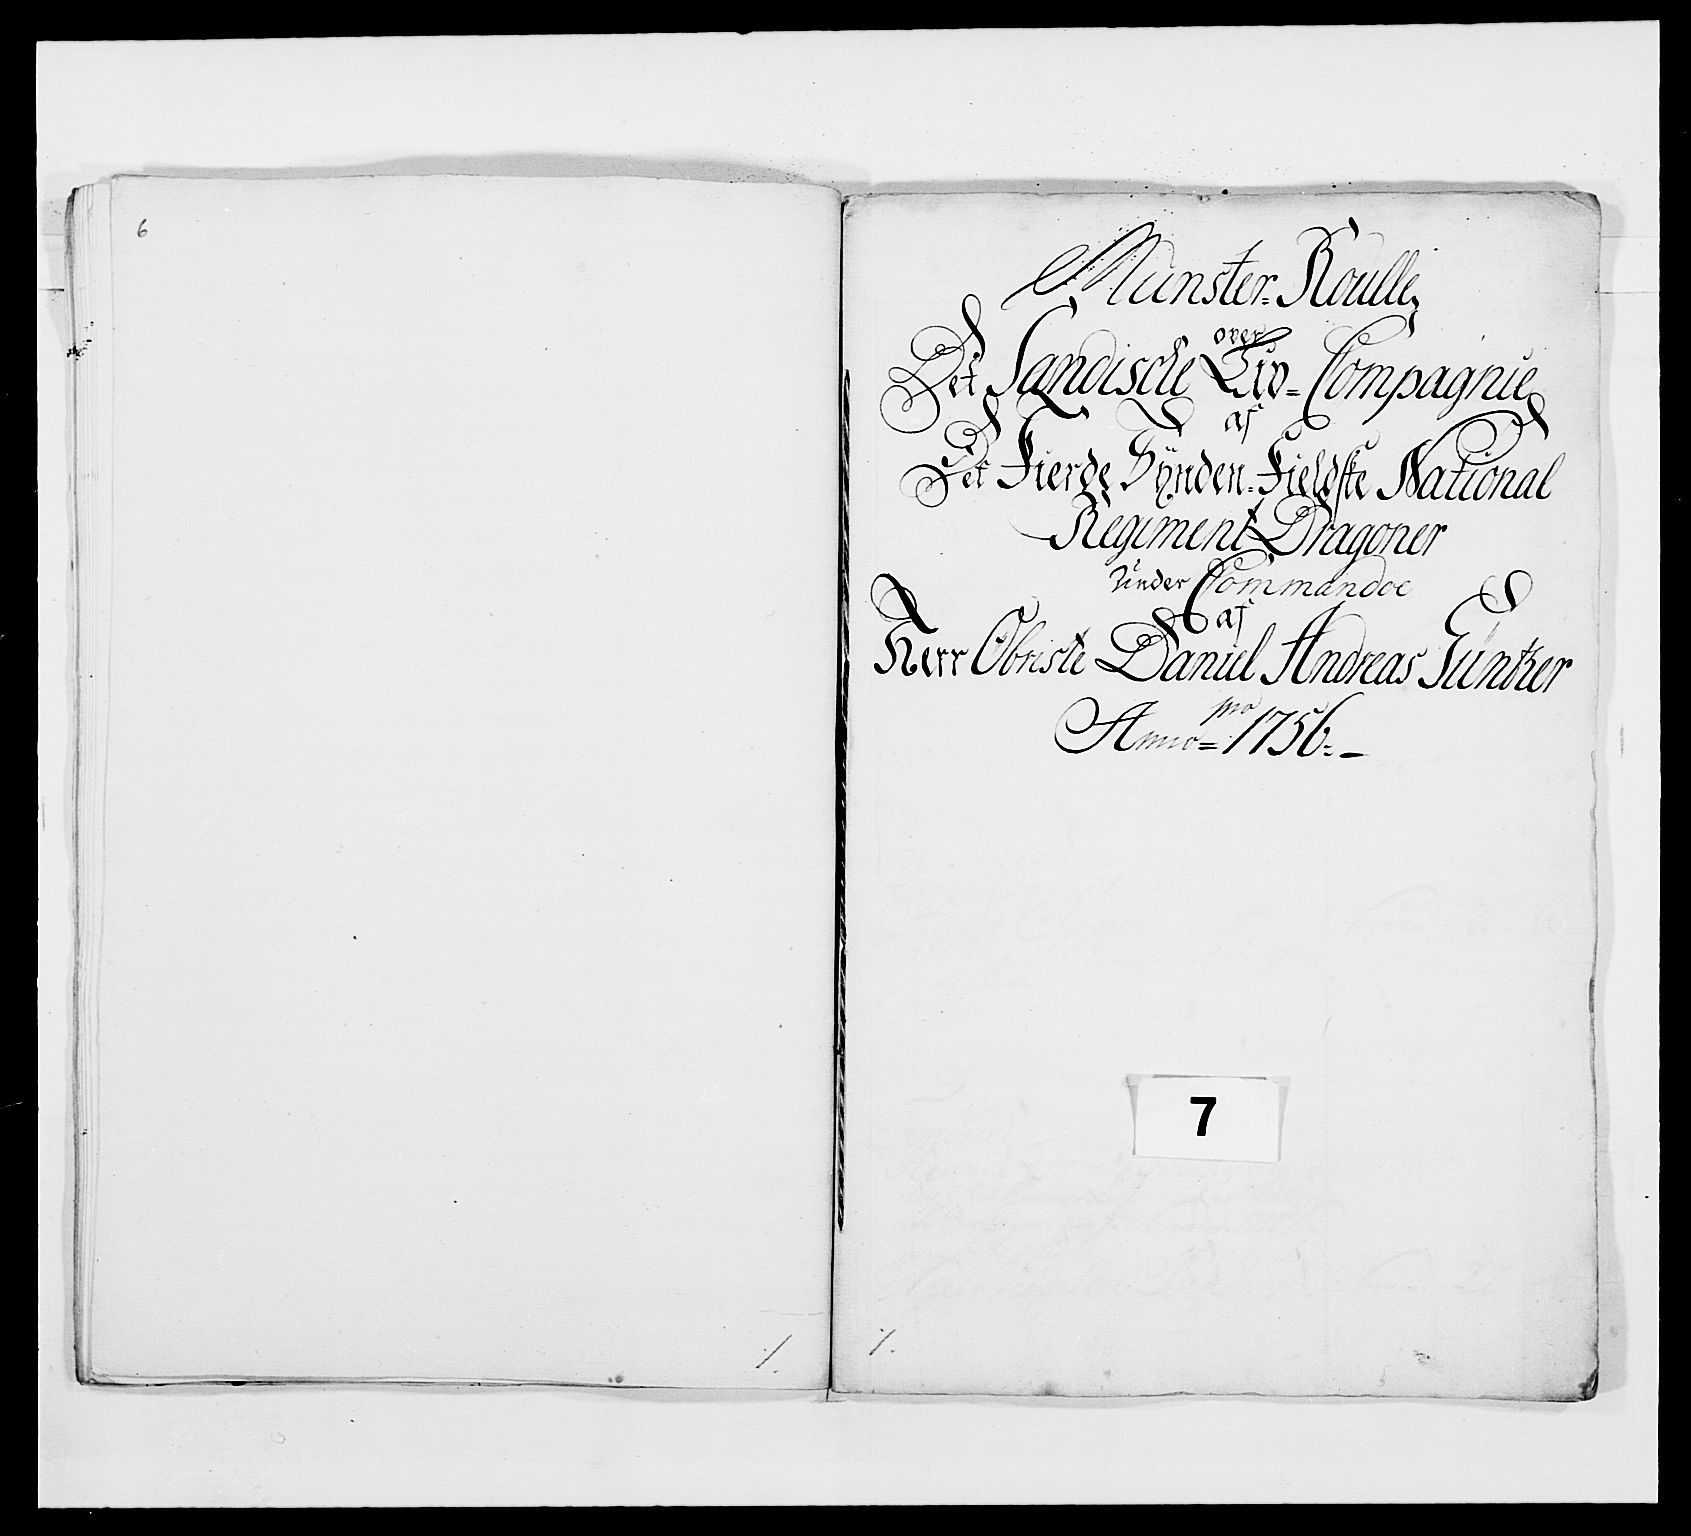 6
Munster-Roulle
over
Det Sandische Liv-Compagnie
af
Det Fierde Synden-Fieldske National
Regiment Dragoner
Under Commandoe
af
Herr Obriste Daniel Andreas Güntzer
pro
Anno 1756
7